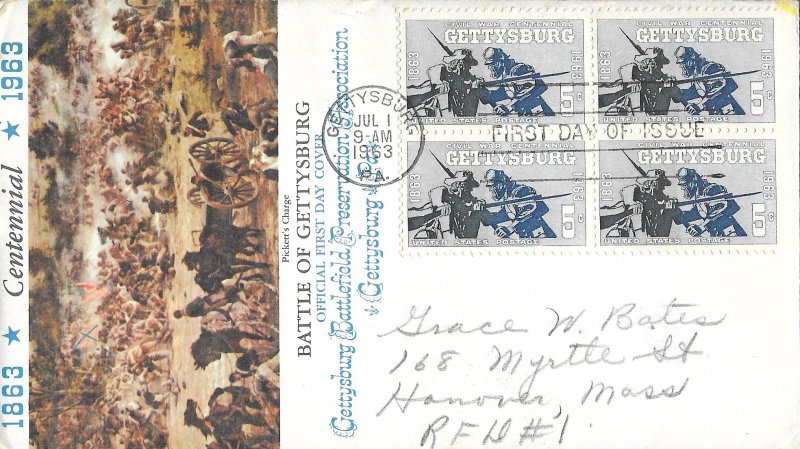 1863 ★ Centennial ★ 1963
Pickett's Charge
BATTLE OF GETTYSBURG
OFFICIAL FIRST DAY COVER
Gettysburg Battlefield Preservation Association
Gettysburg Pa.
CIVIL WAR CENTENNIAL
GETTYSBURG
1863
1963
5c
UNITED STATES POSTAGE
CIVIL WAR CENTENNIAL
GETTYSBURG
1863
1963
5c
UNITED STATES POSTAGE
GETTYSBURG
JUL 1
9-AM
1963
PA.
FIRST DAY OF ISSUE
CIVIL WAR CENTENNIAL
GETTYSBURG
1863
1963
5c
UNITED STATES POSTAGE
CIVIL WAR CENTENNIAL
GETTYSBURG
1863
1963
5c
UNITED STATES POSTAGE
Grace W. Bates
168 Myrtle St
Hanover, Mass
RFD #1.